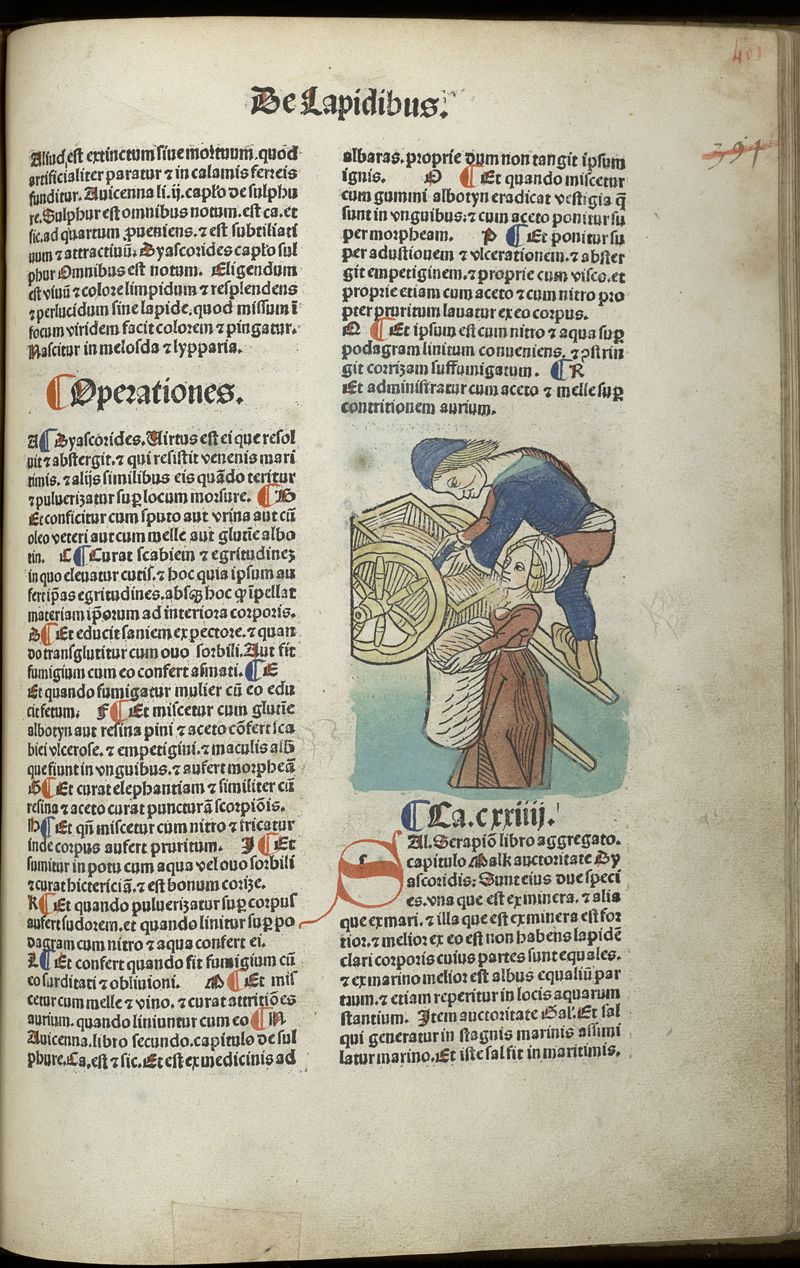 De Lapidibus.
401
394
Aliud, est extinctum siue mortuum. quod
artificialiter paratur ⁊ in calamis ferreis
funditur. Auicenna li. ij. capło de sulphu
re. Sulphur est omnibus notum. est ca. et
sic. ad quartum ꝓueniens. ⁊ est subtiliati
uum ⁊ attractiuū. Dyascorides capło sul
phur Omnibus est notum. Eligendum
est viuū ⁊ colore limpidum ⁊ resplendens
⁊ perlucidum sine lapide. quod missum ī
focum viridem facit colorem ⁊ pingatur.
Nascitur in melosda ⁊ lypparia.
¶ Operationes.
A ¶ Dyascorides. Virtus est ei que resol
uit ⁊ abstergit. ⁊ qui resistit venenis mari
timis. ⁊ alijs similibus eis quādo teritur
⁊ puluerizatur suꝑ locum morsure. ¶ B
Et conficitur cum sputo aut vrina aut cū
oleo veteri aut cum melle aut glutīe albo
tin. C ¶ Curat scabiem ⁊ egritudinez
in quo eleuatur cutis. ⁊ hoc quia ipsum au
fert ip̄as egritudines. absqꝫ hoc ꝙ īpellat
materiam ip̄orum ad interiora corporis.
D ¶ Et educit saniem ex pectore. ⁊ quan
do transglutitur cum ouo sorbili. Aut fit
fumigium cum eo confert asmati. ¶ E
Et quando fumigatur mulier cū eo edu
cit fetum. F ¶ Et miscetur cum glutīe
albotyn aut resina pini ⁊ aceto cōfert sca
biei vlcerose. ⁊ empetigini. ⁊ maculis alb̄
que fiunt in vnguibus. ⁊ aufert morpheā
G ¶ Et curat elephantiam ⁊ similiter cū
resina ⁊ aceto curat puncturā scorpiōis.
H ¶ Et qn̄ miscetur cum nitro ⁊ fricatur
inde corpus aufert pruritum. I ¶ Et
sumitur in potu cum aqua vel ouo sorbili
⁊ curat hictericiā. ⁊ est bonum corize.
K ¶ Et quando puluerizatur suꝑ corpus
aufert sudorem. et quando linitur suꝑ po
dagram cum nitro ⁊ aqua confert ei.
L ¶ Et confert quando fit fumigium cū
eo surditati ⁊ obliuioni. M ¶ Et mis
cetur cum melle ⁊ vino. ⁊ curat attritiōes
aurium. quando liniuntur cum eo ¶ N
Auicenna. libro secundo. capitulo de sul
phure. Ca. est ⁊ sic. Et est ex medicinis ad
albaras. proprie dum non tangit ipsum
ignis. O ¶ Et quando miscetur
cum gummi albotyn eradicat vestigia q̄
sunt in vnguibus. ⁊ cum aceto ponitur su
per morpheam. P ¶ Et ponitur su
per adustionem ⁊ vlcerationem. ⁊ abster
git empetiginem. ⁊ proprie cum visco. et
proprie etiam cum aceto ⁊ cum nitro pro
pter pruritum lauatur ex eo corpus.
Q ¶ Et ipsum est cum nitro ⁊ aqua suꝑ
podagram linitum conueniens. ⁊ ꝯstrin
git corrizam suffumigatum. ¶ R
Et administratur cum aceto ⁊ melle suꝑ
contritionem aurium.
¶ Ca. cxxiiij.
SAl. Serapiō libro aggregato.
capitulo Malk auctoritate Dy
ascoridis: Sunt eius due speci
es. vna que est ex minera. ⁊ alia
que ex mari. ⁊ illa que est ex minera est for
tior. ⁊ melior ex eo est non habens lapidē
clari corporis cuius partes sunt equales.
⁊ ex marino melior est albus equaliū par
tium. ⁊ etiam reperitur in locis aquarum
stantium. Item auctoritate Gal. Et sal
qui generatur in stagnis marinis assimi
latur marino. Et iste sal fit in maritimis.